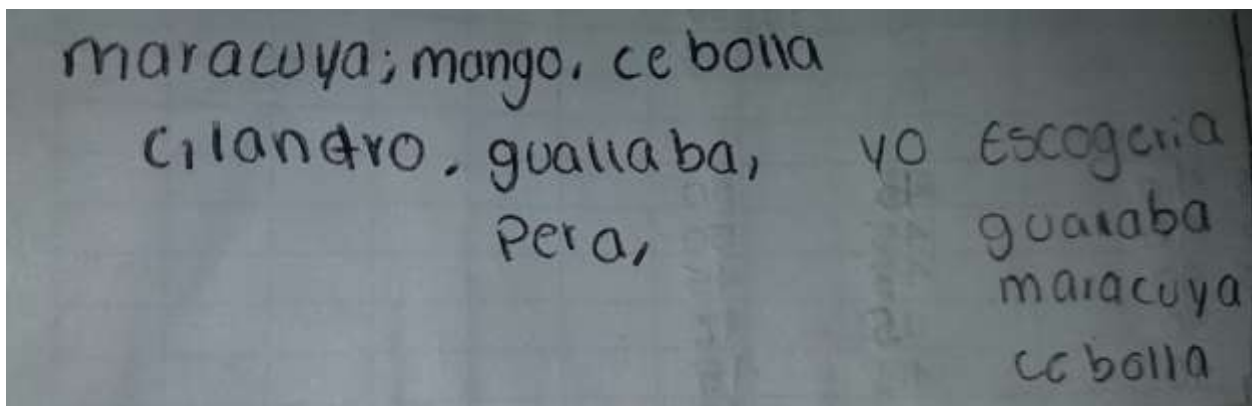 maracuya; mango, cebolla
cilandro, guallaba,
Pera,
yo Escogeria
gualaba
maracuya
cebolla